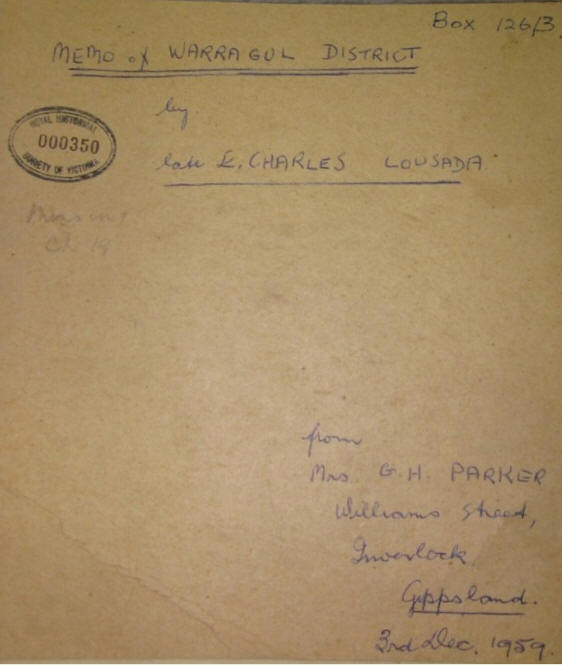 Box 126/3
MEMO of WARRAGUL DISTRICT
by
late E. CHARLES LOUSADA.
ROYAL HISTORICAL
000350
SOCIETY OF VICTORIA
Missing
Ch 18
from
Mrs G.H. PARKER
Williams Street,
Inverlock
Gippsland.
3rd Dec. 1959.